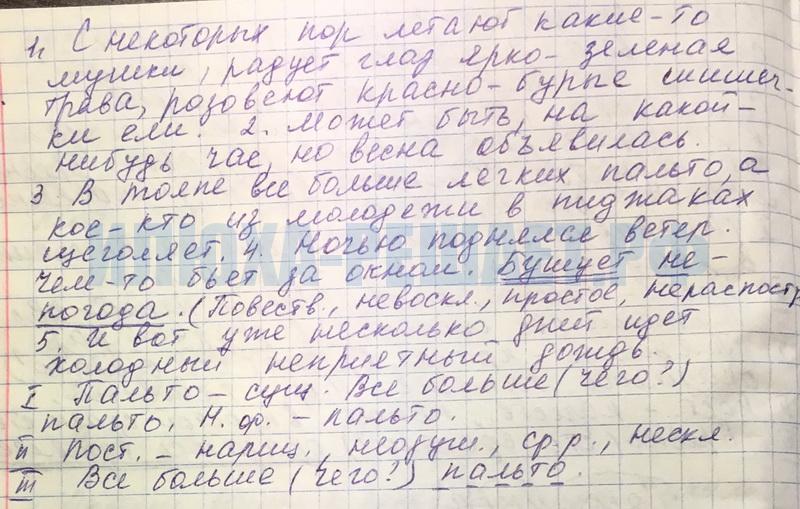 1. С некоторых пор летают какие-то
мушки, радует глаз ярко-зеленая
трава, розовеют красно-бурые шишеч-
ки ели. 2. Может быть, на какой-
нибудь час, но весна объявилась.
3 В толпе все больше легких пальто, а
кое-кто из молодежи в пиджаках
щеголяет. 4. Ночью поднялся ветер.
Чем-то бьет за окном. Бушует не-
погода. (Повеств., невоскл., простое, нераспостр
5. И вот уже несколько дней идет
холодный неприятный дождь.
I Пальто – сущ. Все больше (чего?)
пальто. Н. ф. – пальто.
II Пост. – нариц., неодуш., ср.р., нескл.
III Все больше (чего?) пальто.